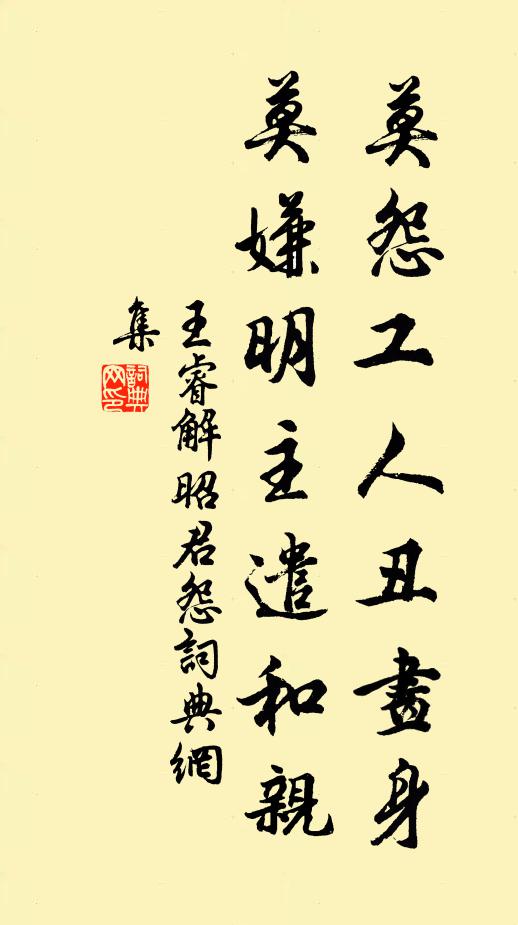 莫怨工人丑畫身
莫嫌明主遣和親
王睿解昭君怨詞典網
集
詞典
网印